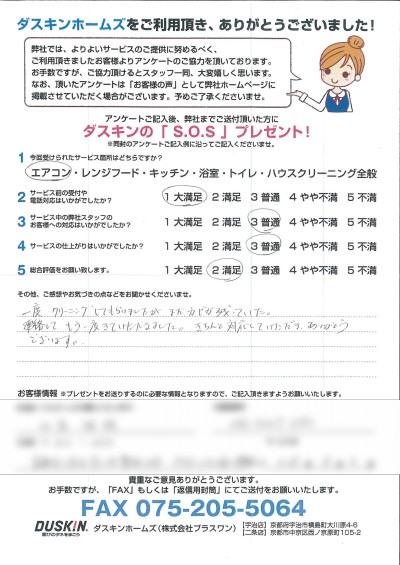 ダスキンホームズをご利用頂き、ありがとうございました!
弊社では、よりよいサービスのご提供に努めるべく、
ご利用頂きましたお客様よりアンケートのご協力を頂いております。
お手数ですが、ご協力頂けるとスタッフ一同、大変嬉しく思います。
なお、頂いたアンケートは「お客様の声」として弊社ホームページに
掲載させていただく場合がございます。予めご了承くださいませ。
アンケートご記入後、弊社までご送付頂いた方に
ダスキンの「S.O.S」プレゼント!
※同封のアンケートご記入例に沿ってご記入くださいませ。
1 今回受けられたサービス箇所はどちらですか?
エアコン・レンジフード・キッチン・浴室・トイレ・ハウスクリーニング全般
2 サービス前の受付や
電話対応はいかがでしたか? 1 大満足 2 満足 3 普通 4 やや不満 5 不満
3 サービス中の弊社スタッフの
お客様への対応はいかがでしたか? 1 大満足 2 満足 3 普通 4 やや不満 5 不満
4 サービスの仕上がりはいかがでしたか? 1 大満足 2 満足 3 普通 4 やや不満 5 不満
5 総合評価をお願い致します。 1 大満足 2 満足 3 普通 4 やや不満 5 不満
その他、ご感想やお気づきの点などをお聞かせくださいませ。
一度 クリーニングしてもらいましたが まだカビが残っていた。
連絡して もう一度きていただきました。きちんと対応していただき、ありがとう
ございます。
お客様情報 ※プレゼントをお送りするのに必要な情報となりますので、ご記入頂きますようお願いいたします。
貴重なご意見ありがとうございます。
お手数ですが、「FAX」もしくは「返信用封筒」にてご送付をお願いいたします。
FAX 075-205-5064
DUSKIN
喜びのタネをまこう
ダスキンホームズ(株式会社プラスワン)
[宇治店] 京都府宇治市槇島町大川原4-6
[二条店] 京都市中京区西ノ京原町105-2